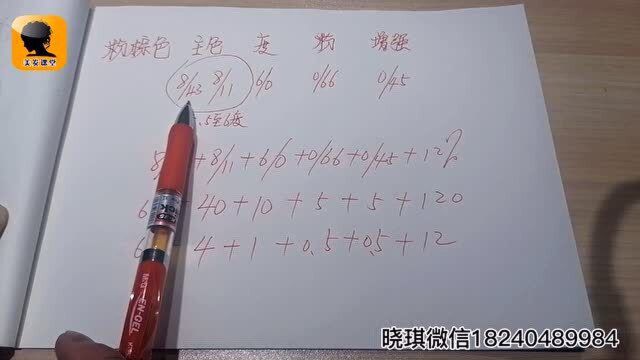 美发课堂
粉棕色 主色 度 粉 增强
8/43 8/11 6/0 0/66 0/45
.5至6度
8/ +8/11+6/0+0/66+0/45+12%
6 40+10+5+5+120
6 4+1+0.5+0.5+12
晓琪微信18240489984